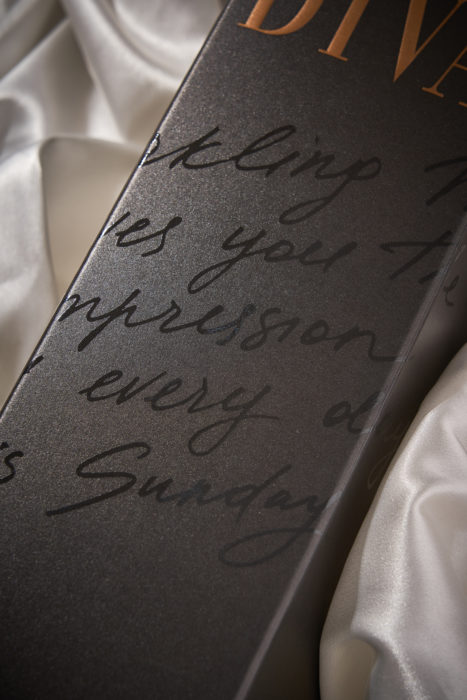 DIVA
kling
es you the
mpression
every day
is Sunday